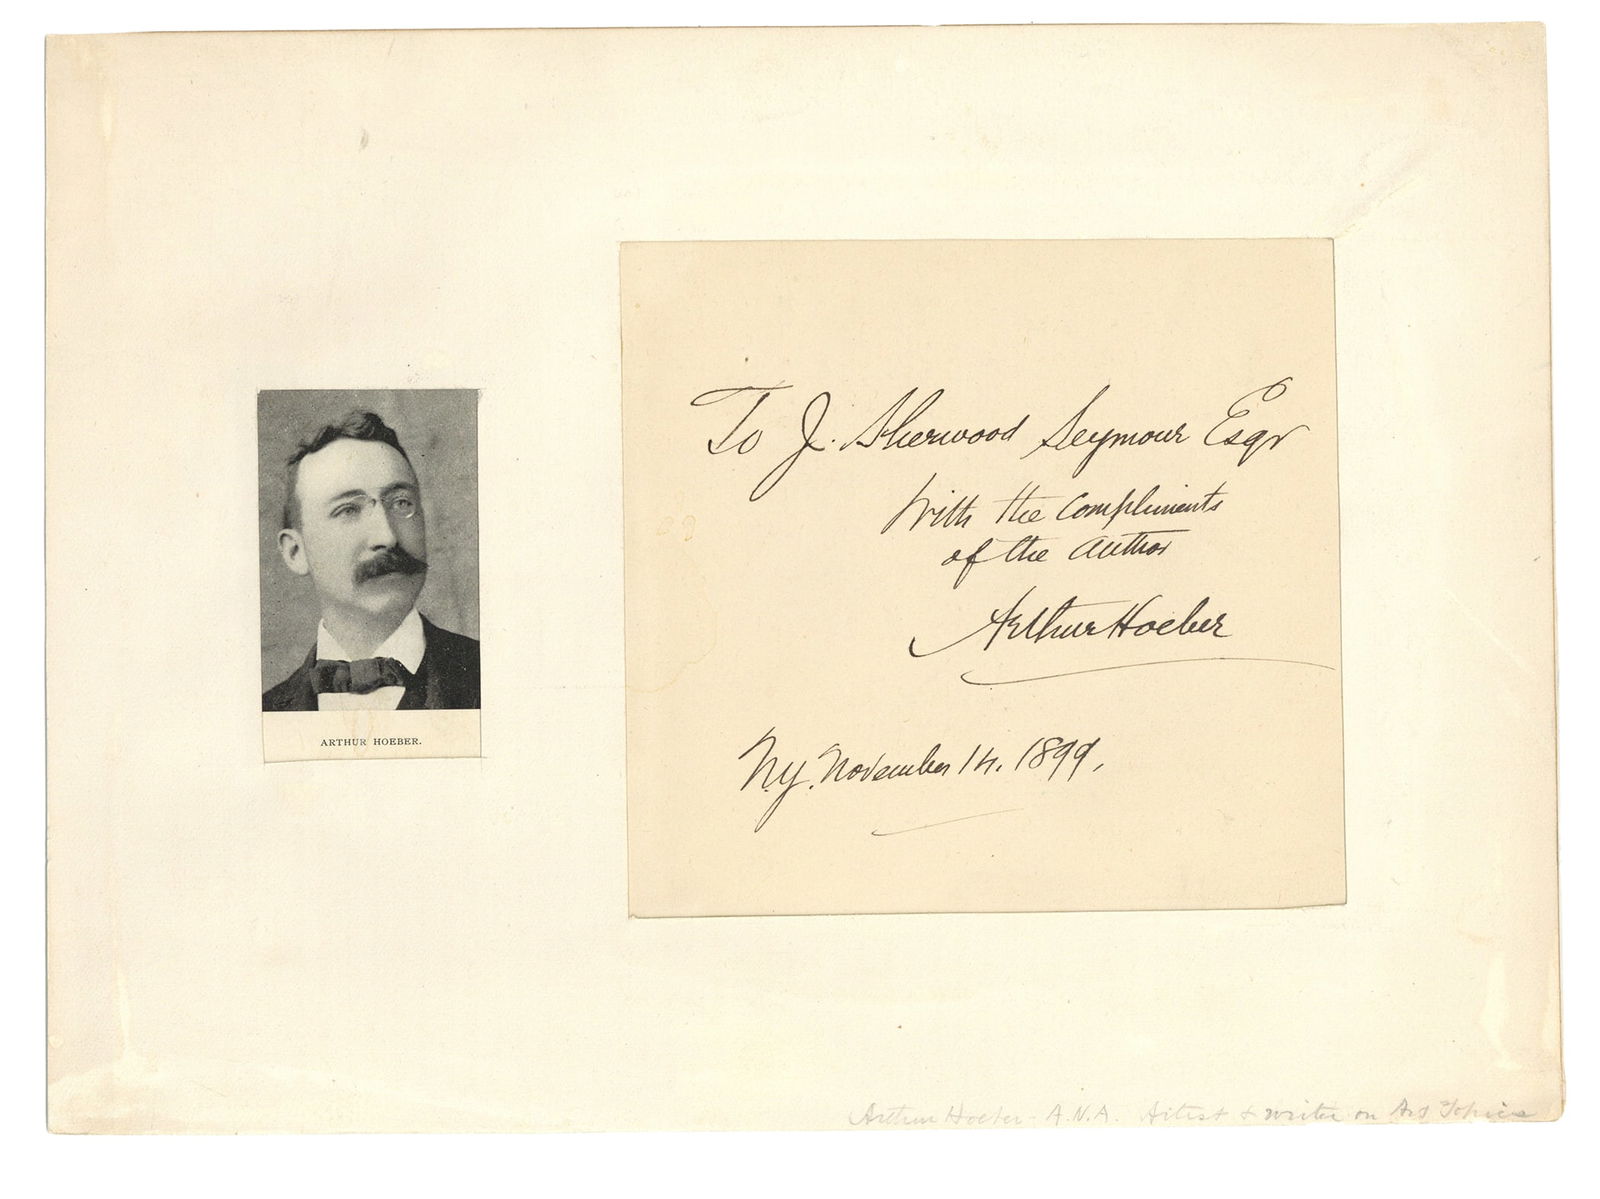 To J. Sherwood Seymour Esqr
With the Compliments
of the Author
Arthur Hoeber
N.Y. November 14. 1899.
ARTHUR HOEBER.
Arthur Hoeber - A.N.A. Artist & writer on Art Topics